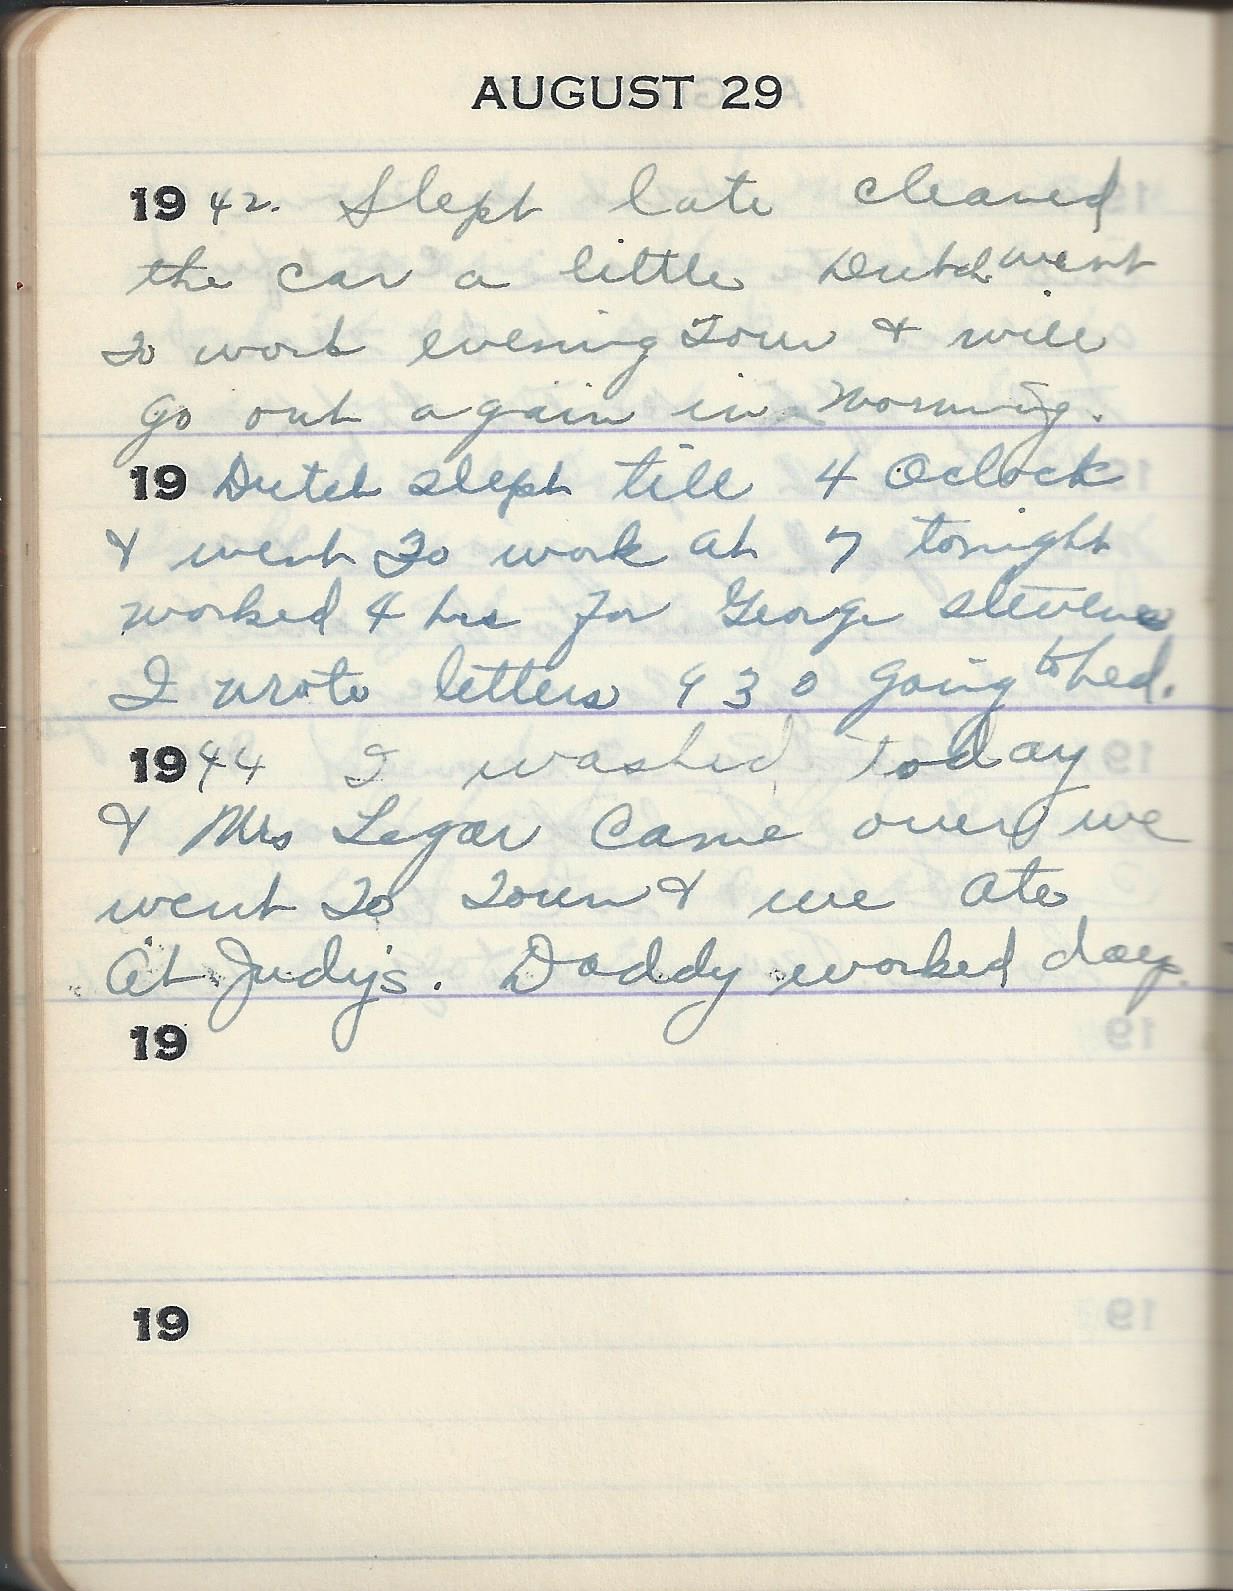 AUGUST 29
1942. Slept late cleaned
the car a little Dutch went
to work evening Tour & will
go out again in morning.
19 Dutch slept till 4 Oclock
& went To work at 7 tonight
worked 4 hrs for George Stevens
I wrote letters 9 3 0 going to bed.
1944 I washed Today
& Mrs Legar Came over we
went To Town & we ate
At Judy's. Daddy worked day.
19
19